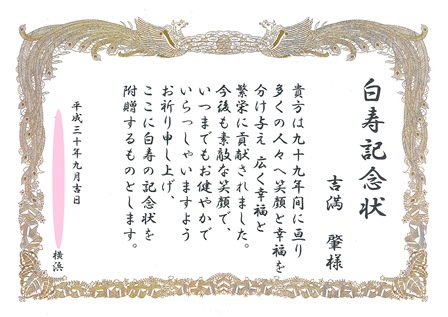 白寿記念状
吉満 肇様
貴方は九十九年間に亘り
多くの人々へ笑顔と幸福を
分け与え 広く幸福と
繁栄に貢献されました。
今後も素敵な笑顔で、
いつまでもお健やかで
いらっしゃいますよう
お祈り申し上げ、
ここに白寿の記念状を
附贈するものとします。
平成三十年九月吉日
横浜